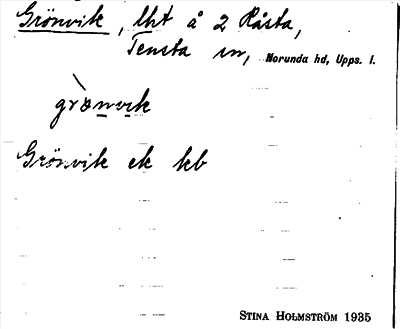 Grönvik, lht å 2 Råsta,
Tensta sn, Norunda hd, Upps. l.
grö̀nvik
Grönvik ek kb
STINA HOLMSTRÖM 1935